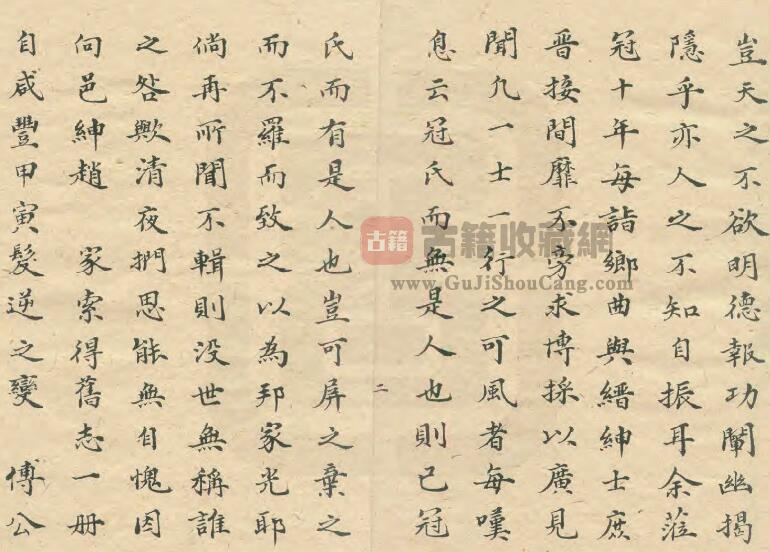 豈天之不欲明德報功闡幽揭
隱乎亦人之不知自振耳余蒞
冠十年每詣鄉曲與縉紳士庶
晋接間靡不旁求博採以廣見
聞凡一士一行之可風者每嘆
息云冠氏而無是人也則已冠
二
氏而有是人也豈可屏之棄之
而不羅而致之以為邦家光耶
倘再所聞不輯則没世無稱誰
之咎歟清夜捫思能無自愧因
向邑紳趙 家索得舊志一册
自咸豐甲寅髮逆之變 傅公
古籍 古籍收藏網
www.GuJiShouCang.com